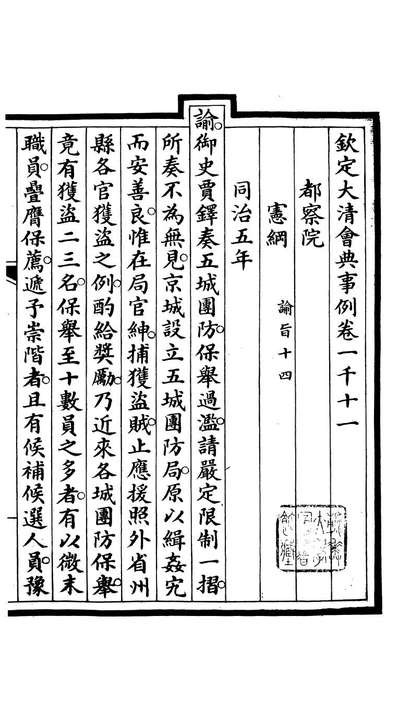 欽定大清會典事例卷一千十一
都察院
憲綱 諭旨十四
同治五年
諭。御史賈鐸奏五城團防。保舉過濫。請嚴定限制一摺。
所奏不為無見。京城設立五城團防局。原以緝姦宄
而安善良。惟在局官紳。捕獲盜賊。止應援照外省州
縣各官獲盜之例。酌給獎勵。乃近來各城團防保舉。
竟有獲盜二三名。保舉至十數員之多者。有以微末
職員。疊膺保薦。遞予崇階者。且有候補候選人員。豫